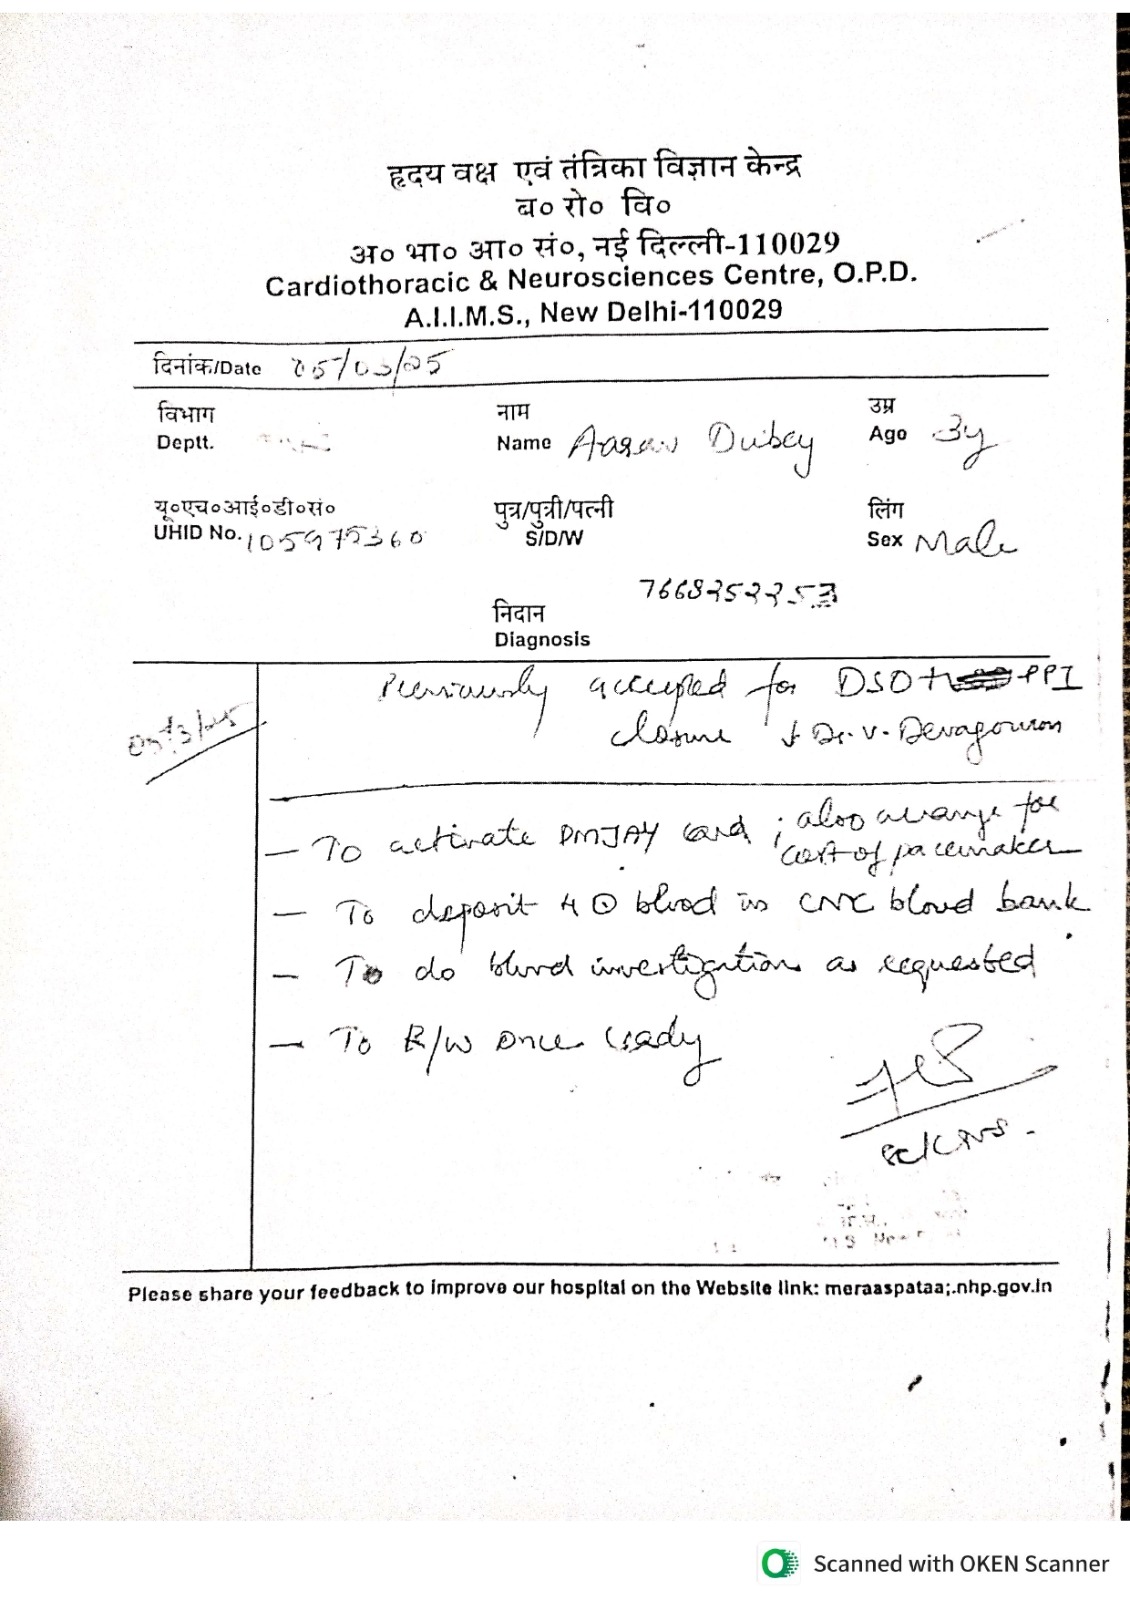 हृदय वक्ष एवं तंत्रिका विज्ञान केन्द्र
ब० रो० वि०
अ० भा० आ० सं०, नई दिल्ली-110029
Cardiothoracic & Neurosciences Centre, O.P.D.
A.I.I.M.S., New Delhi-110029
दिनांक/Date 05/03/25
विभाग नाम उम्र
Deptt. Name Aarav Dubey Age 3y
यू०एच०आई०डी०सं० पुत्र/पुत्री/पत्नी लिंग
UHID No. 105975360 S/D/W Sex Male
7668252253
निदान
Diagnosis
Previously accepted for DSO + PPI
05/3/25 closure Dr. V. Devagouron
— To activate PMJAY card ; also arrange for
cost of pacemaker
— To deposit 4 blood in CNC blood bank
— To do blood investigations as requested
— To R/W once ready
Please share your feedback to improve our hospital on the Website link: meraaspataa;.nhp.gov.in
Scanned with OKEN Scanner